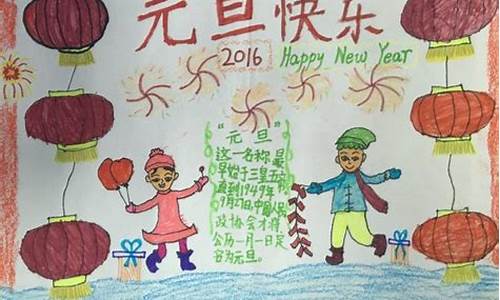 元旦快乐
2016 Happy New Year
"元旦"
这一名称是
早始于三皇五
直到1949年
9月27日,中国人民
政协会才将
公历一月一日定
名为元旦。